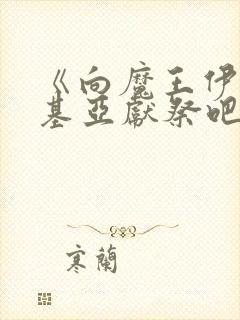 《向魔王伊
基亞獻祭吧
寒蘭